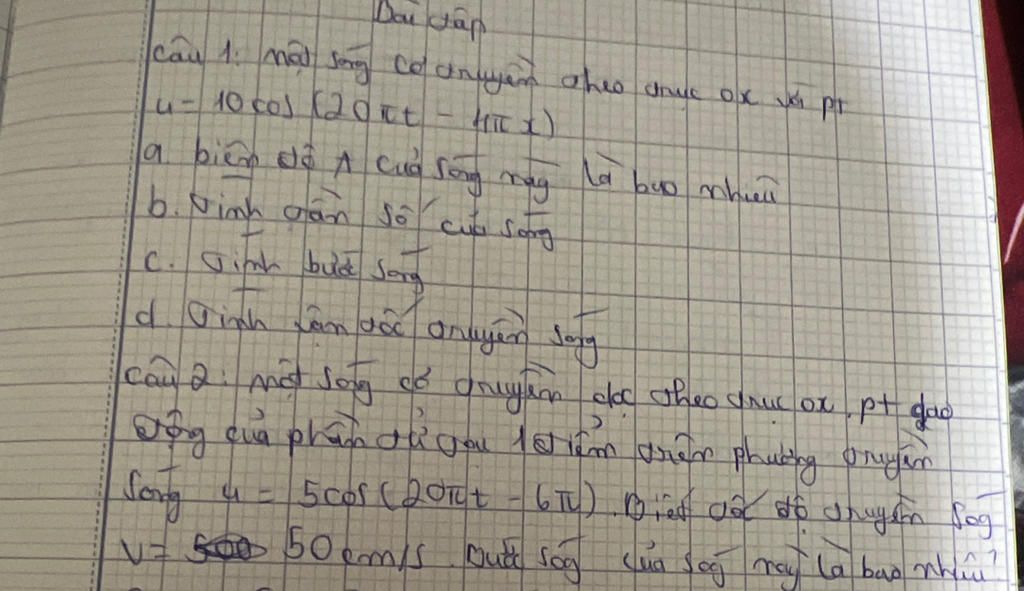 Bài tập
câu 1: một sóng cơ truyền theo trục ox với pt
u = 10cos (20πt - 4πx)
a. biên độ A của sóng này là bao nhiêu
b. Tính tần số của sóng
c. Tính bước sóng
d. Tính vận tốc truyền sóng
câu 2: một sóng cơ truyền dọc theo trục ox, pt dao
động của phần tử tại 1 điểm trên phương truyền
sóng u = 5cos(20πt - 6π). Biết tốc độ truyền sóg
v = 50cm/s. bước sóg của sóg này là bao nhiêu?